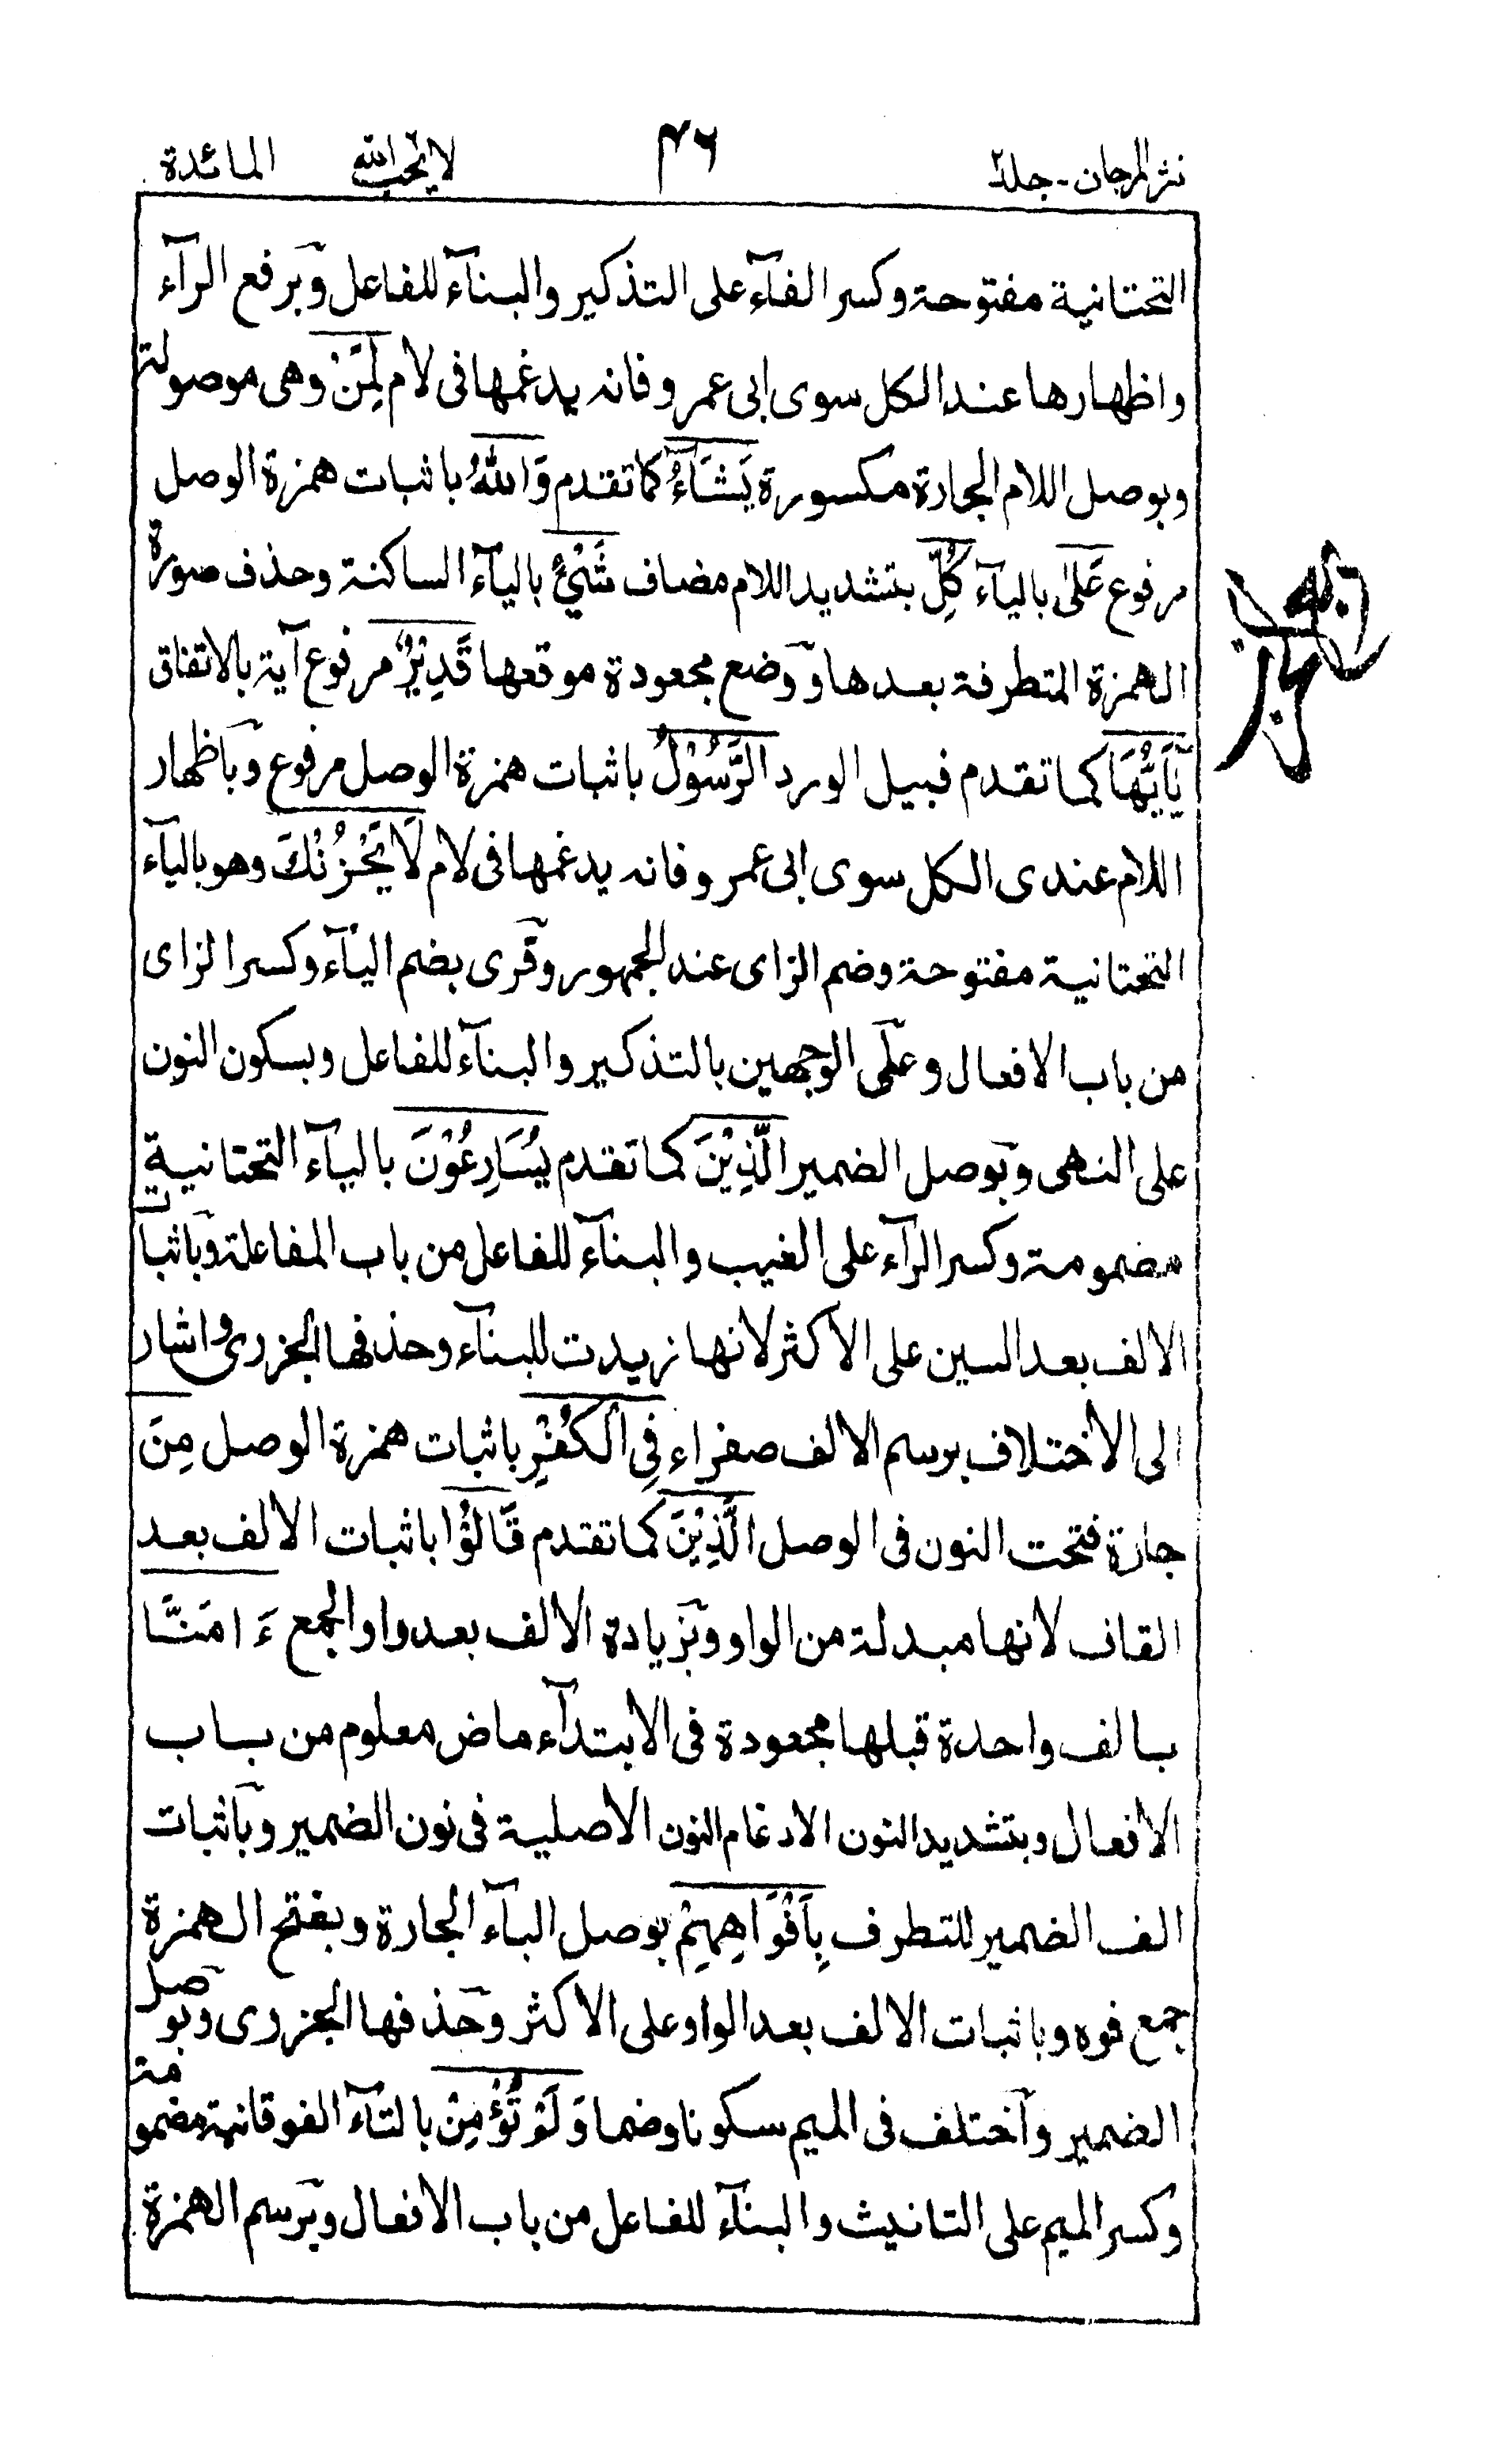 نثر المرجان - جلد ٢ ٤٦ لا يحب الله المائدة
التحتانية مفتوحة وكسر الفآء على التذكير والبنآء للفاعل وبرفع الرآء
واظهارها عند الكل سوى ابى عمرو فانه يدغمها فى لام لِمَنْ وهى موصولة
وبوصل اللام الجارة مكسورة يَشَآءُ كما تقدم وَاللّٰهُ باثبات همزة الوصل
مرفوع عَلٰى باليآء كُلِّ بتشديد اللام مضاف شَيْءٍ باليآء الساكنة وحذف صورة
الهمزة المتطرفة بعدها ووضع مجعودة موقعها قَدِيْرٌ مرفوع آية بالاتفاق
يٰٓاَيُّهَا كما تقدم قبيل الورد الرَّسُوْلُ باثبات همزة الوصل مرفوع وباظهار
اللام عندى الكل سوى ابى عمرو فانه يدغمها فى لام لَا يَحْزُنْكَ وهو باليآء
التحتانية مفتوحة وضم الزاى عند الجمهور وقرى بضم اليآء وكسر الزاى
من باب الافعال وعلى الوجهين بالتذكير والبنآء للفاعل وبسكون النون
على النهى وبوصل الضمير الَّذِيْنَ كما تقدم يُسَارِعُوْنَ باليآء التحتانية
مضمومة وكسر الرآء على الغيب والبنآء للفاعل من باب المفاعلة وباثبات
الالف بعد السين على الاكثر لانها زيدت للبنآء وحذفها الجزرى واشار
الى الاختلاف برسم الالف صفراء فِى الْكُفْرِ باثبات همزة الوصل مِنَ
جارة فتحت النون فى الوصل الَّذِيْنَ كما تقدم قَالُوْا باثبات الالف بعد
القاف لانها مبدلة من الواو وبزيادة الالف بعد واو الجمع ءَامَنَّا
بالف واحدة قبلها مجعودة فى الابتدآء ماض معلوم من باب
الافعال وبتشديد النون الادغام النون الاصلية فى نون الضمير وباثبات
الف الضمير للتطرف بِاَفْوَاهِهِمْ بوصل البآء الجارة وبفتح الهمزة
جمع فوه وباثبات الالف بعد الواو على الاكثر وحذفها الجزرى وبوصل
الضمير واختلف فى الميم سكونا وضما وَلَمْ تُؤْمِنْ بالتآء الفوقانية مضمومة
وكسر الميم على التانيث والبنآء للفاعل من باب الافعال وبرسم الهمزة